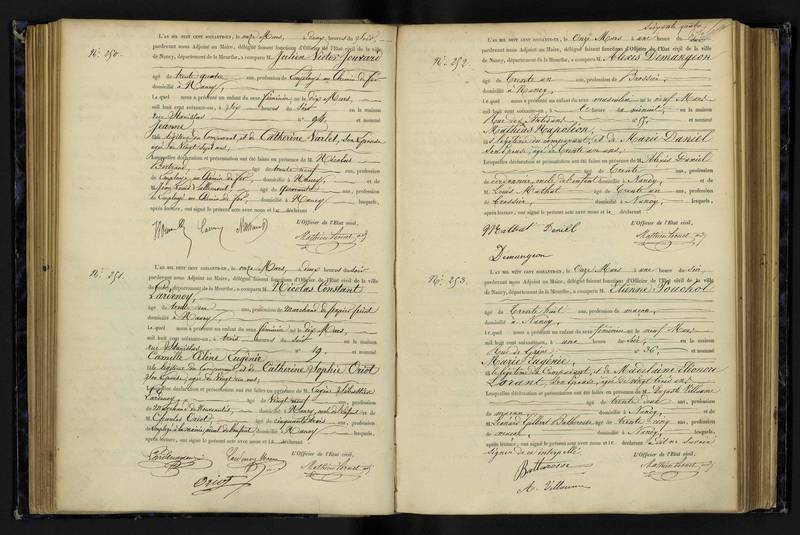 N° 250.
L'AN MIL HUIT CENT SOIXANTE-UN, le onze Mars, à deux heures du soir,
pardevant nous Adjoint au Maire, délégué faisant fonctions d'Officier de l'Etat civil de la ville
de Nancy, département de la Meurthe, a comparu M. Julien Victor
âgé de trente quatre ans, profession de Employé au Chemin de fer
domicilié à Nancy,
Lequel nous a présenté un enfant du sexe féminin né le dix Mars,
mil huit cent soixante-un, à dix heures du soir en la maison
rue Stanislas n° 94. et nommé
Jeanne
fille légitime du Comparant, et de Catherine Varlet, Son Epouse
agée de Vingt sept ans,
Lesquelles déclaration et présentation ont été faites en présence de M. Nicolas
Bertrand, âgé de trente neuf ans, profession
de Employé au Chemin de fer, domicilié à Nancy et de
M. Jean Louis âgé de quarante ans, profession
de Employé au Chemin de fer, domicilié à Nancy lesquels,
après lecture, ont signé le présent acte avec nous et le déclarant
L'Officier de l'Etat civil,
N° 251.
L'AN MIL HUIT CENT SOIXANTE-UN, le onze Mars, deux heures du soir
pardevant nous Adjoint au Maire, délégué faisant fonctions d'Officier de l'Etat civil de la ville
de Nancy, département de la Meurthe, a comparu M. Nicolas Constant
Lardenoy,
âgé de trente un ans, profession de Marchand de papier peint
domicilié à Nancy
Lequel nous a présenté un enfant du sexe féminin né le dix Mars,
mil huit cent soixante-un, à trois heures du soir en la maison
rue Stanislas n° 19. et nommé
Camille Aline Eugénie
fille légitime du Comparant et de Catherine Sophie Oriot
Son Epouse, agée de Vingt six ans
Lesquelles déclaration et présentation ont été faites en présence de M. Eugène Sébastien
Lardenoy âgé de Vingt neuf ans, profession
de Marchand de domicilié à Nancy, oncle de l'enfant et de
M. Charles Oriot âgé de cinquante trois ans, profession
de Employé à la mairie, aieul de l'enfant, domicilié à Nancy lesquels,
après lecture, ont signé le présent acte avec nous et le déclarant
L'Officier de l'Etat civil,
Oriot
N° 252.
L'AN MIL HUIT CENT SOIXANTE-UN, le Onze Mars à une heure du soir
pardevant nous Adjoint au Maire, délégué faisant fonctions d'Officier de l'Etat civil de la ville
de Nancy, département de la Meurthe, a comparu M. Alexis Demangeon
âgé de Trente un ans, profession de Brossier,
domicilié à Nancy,
Lequel nous a présenté un enfant du sexe masculin né le neuf Mars
mil huit cent soixante-un, à heures en la maison
Rue des Artisans n° 17. et nommé
Mathias Napoléon,
fils légitime du comparant, et de Marie Daniel
son épouse, agée de trente un ans,
Lesquelles déclaration et présentation ont été faites en présence de M. Alexis Daniel
âgé de Trente ans, profession
de oncle de l'enfant domicilié à Nancy, et de
M. Louis Mathot âgé de Trente un ans, profession
de brossier, domicilié à Nancy, lesquels,
après lecture, ont signé le présent acte avec nous et le déclarant
L'Officier de l'Etat civil,
Mathot Daniel
Demangeon
N° 253.
L'AN MIL HUIT CENT SOIXANTE-UN, le Onze Mars à une heure du soir,
pardevant nous Adjoint au Maire, délégué faisant fonctions d'Officier de l'Etat civil de la ville
de Nancy, département de la Meurthe, a comparu M. Etienne Pouchol
âgé de Trente huit ans, profession de maçon,
domicilié à Nancy,
Lequel nous a présenté un enfant du sexe féminin né le neuf Mars
mil huit cent soixante-un, à une heure du soir, en la maison
n° 36, et nommé
Marie Eugénie,
fille légitime du Comparant, et de Madelaine Eléonore
son épouse, agée de vingt trois ans,
Lesquelles déclaration et présentation ont été faites en présence de M. Auguste Villaume
âgé de trente deux ans, profession
de maçon domicilié à Nancy, et de
M. Léonard Gilbert âgé de Trente cinq ans, profession
de domicilié à Nancy, lesquels,
après lecture, ont signé le présent acte avec nous et le déclarant a dit ne savoir
signer de ce interpellé.
L'Officier de l'Etat civil,
A. Villaume